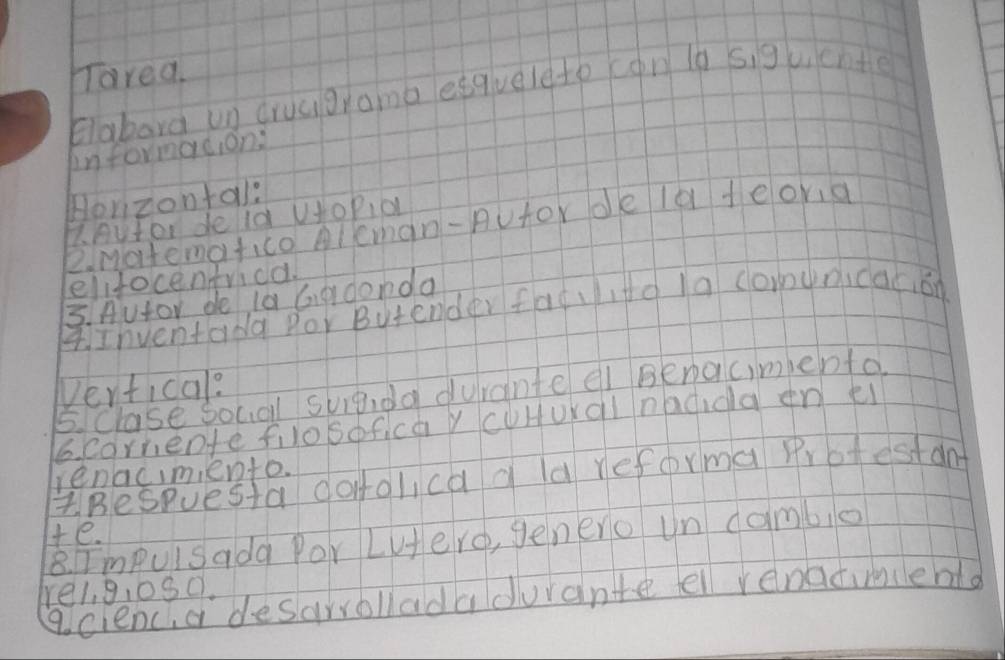 Tarea.
Elabora un crucigrama esqueleto con la siguiente
información:
Horizontal:
1. Autor de la Utopia
2. Matematico Aleman - Autor de la teoria
elitocentrica.
3. Autor de la Gioconda
4. Inventada Por Butender facilito la comunicación.
Vertical:
5. Clase Social surgida durante el Renacimiento.
6. Corriente filosofica y cultural nacida en el
renacimiento.
7. Respuesta catolica a la reforma Protestan
te.
8. Impulsada Por Lutero, genero un cambio
religioso.
9. ciencia desarrollada durante el renacimiento